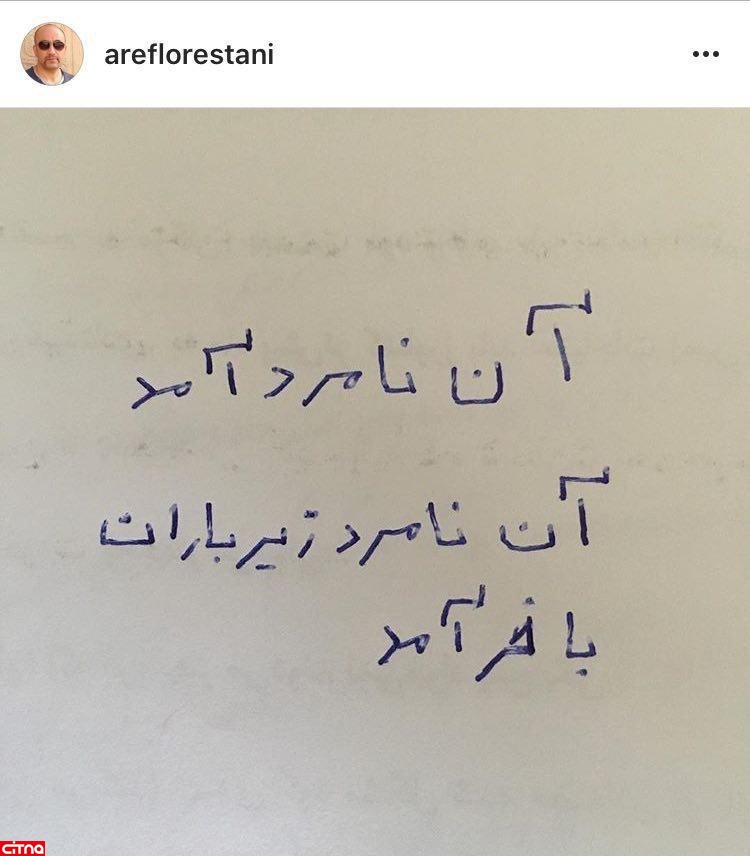 areflorestani
آن نامرد آمد
آن نامرد زیر باران
با آمد
CITNA